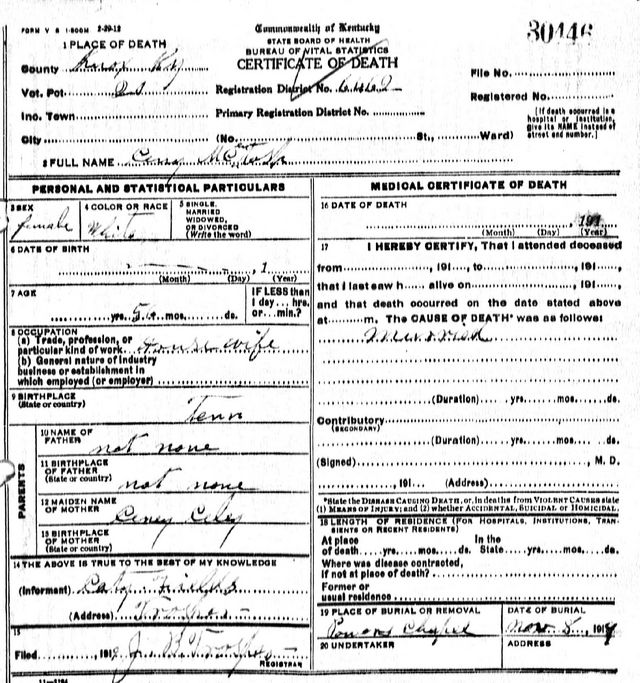 FORM V S 1-500M 2-29-12
Commonwealth of Kentucky
STATE BOARD OF HEALTH
BUREAU OF VITAL STATISTICS
CERTIFICATE OF DEATH
30446
1 PLACE OF DEATH
County Knox Ky
Vot. Pct
Registration District No.
Inc. Town
Primary Registration District No.
City (No. St., Ward)
File No.
Registered No.
[If death occurred in a hospital or institution, give its NAME instead of street and number.]
2 FULL NAME
PERSONAL AND STATISTICAL PARTICULARS
3 SEX
female
4 COLOR OR RACE
White
5 SINGLE, MARRIED WIDOWED, OR DIVORCED (Write the word)
6 DATE OF BIRTH
, 1
(Month) (Day) (Year)
7 AGE
yrs. mos. ds.
IF LESS than 1 day... hrs. or... min.?
8 OCCUPATION
(a) Trade, profession, or particular kind of work House wife
(b) General nature of industry
business or establishment in
which employed (or employer)
9 BIRTHPLACE
(State or country)
Tenn
PARENTS
10 NAME OF FATHER
not none
11 BIRTHPLACE OF FATHER
(State or country)
not none
12 MAIDEN NAME OF MOTHER
13 BIRTHPLACE OF MOTHER
(State or country)
14 THE ABOVE IS TRUE TO THE BEST OF MY KNOWLEDGE
(Informant)
(Address)
15
Filed , 191
REGISTRAR
11-3184
MEDICAL CERTIFICATE OF DEATH
16 DATE OF DEATH
, 191
(Month) (Day) (Year)
17 I HEREBY CERTIFY, That I attended deceased
from , 191 , to , 191 ,
that I last saw h alive on , 191 ,
and that death occurred on the date stated above
at m. The CAUSE OF DEATH* was as follows:
(Duration) yrs. mos. ds.
Contributory
(SECONDARY)
(Duration) yrs. mos. ds.
(Signed) , M. D.
, 191 (Address)
*State the DISEASE CAUSING DEATH, or, in deaths from VIOLENT CAUSES state
(1) MEANS OF INJURY; and (2) whether ACCIDENTAL, SUICIDAL or HOMICIDAL.
18 LENGTH OF RESIDENCE (FOR HOSPITALS, INSTITUTIONS, TRANSIENTS OR RECENT RESIDENTS)
At place of death yrs. mos. ds. In the State yrs. mos. ds.
Where was disease contracted,
if not at place of death?
Former or
usual residence
19 PLACE OF BURIAL OR REMOVAL
Chapel
DATE OF BURIAL
Nov. 8, 191
20 UNDERTAKER
ADDRESS